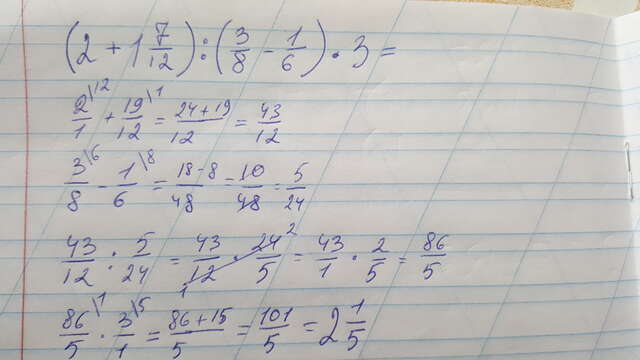 (2 + 1 7/12) : (3/8 - 1/6) · 3 =
2\12/1 + 19\1/12 = 24+19/12 = 43/12
3\6/8 - 1\8/6 = 18-8/48 = 10/48 = 5/24
43/12 : 5/24 = 43/12 · 24/5 = 43/1 · 2/5 = 86/5
86\1/5 · 3\5/1 = 86+15/5 = 101/5 = 2 1/5